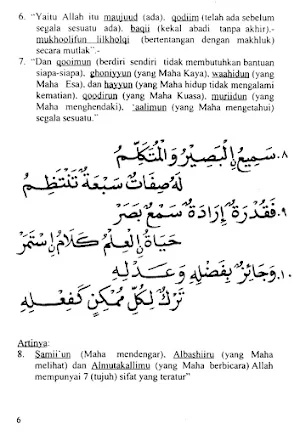 6. "Yaitu Allah itu maujuud (ada), qodiim (telah ada sebelum
segala sesuatu ada), baqii (kekal abadi tanpa akhir).-
mukhoolifun lilkholqi (bertentangan dengan makhluk)
secara mutlak".-
7. "Dan qooimun (berdiri sendiri tidak membutuhkan bantuan
siapa-siapa), ghoniyyun (yang Maha Kaya), waahidun (yang
Maha Esa), dan hayyun (yang Maha hidup tidak mengalami
kematian), qoodirun (yang Maha Kuasa), muriidun (yang
Maha menghendaki), 'aalimun (yang Maha mengetahui)
segala sesuatu."
٨. سَمِيعٌ الْبَصِيْرُ وَالْمُتَكَلِّمُ
لَهُ صِفَاتٌ سَبْعَةٌ تَنْتَظِمُ
٩. فَقُدْرَةٌ إِرَادَةٌ سَمْعٌ بَصَرْ
حَيَاةٌ الْعِلْمُ كَلَامٌ اسْتَمَرْ
١٠. وَجَائِزٌ بِفَضْلِهِ وَعَدْلِهِ
تَرْكٌ لِكُلِّ مُمْكِنٍ كَفِعْلِهِ
Artinya:
8. Samii'un (Maha mendengar), Albashiiru (yang Maha
melihat) dan Almutakallimu (yang Maha berbicara) Allah
mempunyai 7 (tujuh) sifat yang teratur"
6